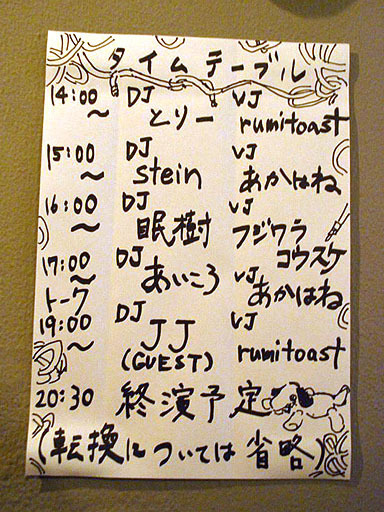 タイムテーブル
14:00〜 DJ とりー VJ rumitoast
15:00〜 DJ stein VJ あかはね
16:00〜 DJ 眠樹 VJ フジワラコウスケ
17:00〜 DJ あいころ VJ あかはね
トーク
19:00〜 DJ JJ (GUEST) VJ rumitoast
20:30 終演予定
(転換については省略)